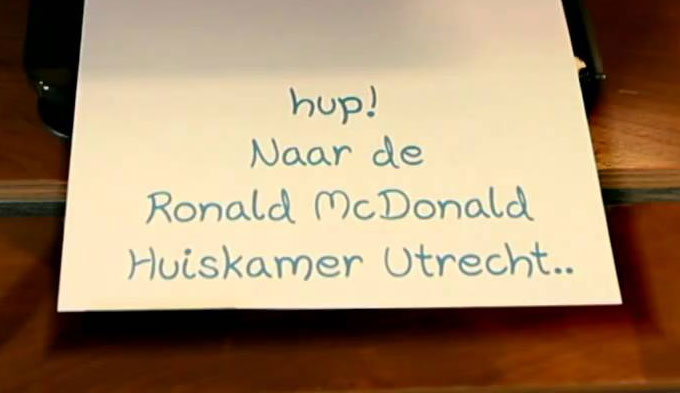 hup!
Naar de
Ronald McDonald
Huiskamer Utrecht..